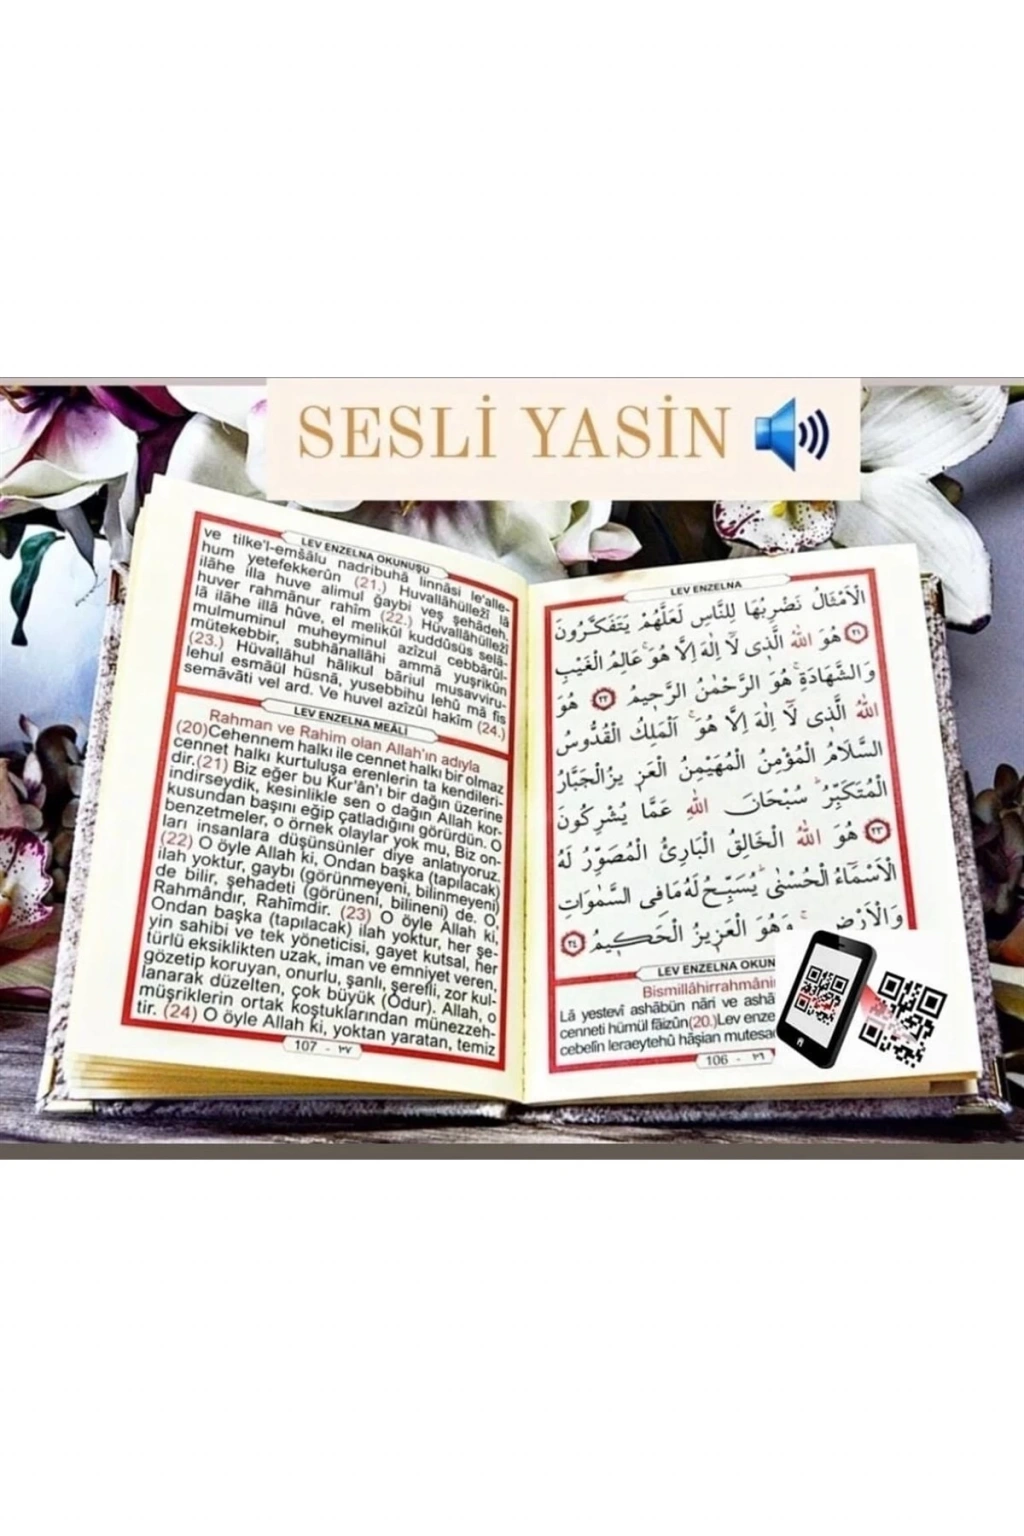 SESLİ YASİN
LEV ENZELNA OKUNUŞU
ve tilke'l-emšâlu nadribuhâ linnâsi le'alle-
hum yetefekkerûn (21.) Huvallâhülleží lâ
ilâhe illa huve alimul ğaybi veş şehâdeh,
huver rahmânur rahîm (22.) Hüvallâhülleží
lâ ilâhe illâ hûve, el melikûl kuddûsüs selâ-
mulmuminul muheyminul azîzul cebbârûl-
mütekebbir, subhânallâhi ammâ yuşrikûn
(23.) Hüvallâhul hâlikul bâriul musavviru-
lehul esmâül hüsnâ, yusebbihu lehû mâ fis
semâvâti vel ard. Ve huvel azîzûl hakîm (24.)
LEV ENZELNA MEÂLİ
Rahman ve Rahim olan Allah'ın adıyla
(20)Cehennem halkı ile cennet halkı bir olmaz
cennet halkı kurtuluşa erenlerin ta kendileri-
dir.(21) Biz eğer bu Kur'ân'ı bir dağın üzerine
indirseydik, kesinlikle sen o dağın Allah kor-
kusundan başını eğip çatladığını görürdün. O
benzetmeler, o örnek olaylar yok mu, Biz on-
ları insanlara düşünsünler diye anlatıyoruz.
(22) O öyle Allah ki, Ondan başka (tapılacak)
ilah yoktur, gaybı (görünmeyeni, bilinmeyeni)
de bilir, şehadeti (görüneni, bilineni) de. O,
Rahmândır, Rahîmdir. (23) O öyle Allah ki,
Ondan başka (tapılacak) ilah yoktur, her şe-
yin sahibi ve tek yöneticisi, gayet kutsal, her
türlü eksiklikten uzak, iman ve emniyet veren,
gözetip koruyan, onurlu, şanlı, şerefli, zor kul-
lanarak düzelten, çok büyük (Odur). Allah, o
müşriklerin ortak koştuklarından münezzeh-
tir. (24) O öyle Allah ki, yoktan yaratan, temiz
107 - ١٠٧
LEV ENZELNA
الْاَمْثَالُ نَضْرِبُهَا لِلنَّاسِ لَعَلَّهُمْ يَتَفَكَّرُونَ
﴿٢١﴾ هُوَ اللّٰهُ الَّذٖى لَٓا اِلٰهَ اِلَّا هُوَۚ عَالِمُ الْغَيْبِ
وَالشَّهَادَةِۚ هُوَ الرَّحْمٰنُ الرَّحٖيمُ ﴿٢٢﴾ هُوَ
اللّٰهُ الَّذٖى لَٓا اِلٰهَ اِلَّا هُوَۚ اَلْمَلِكُ الْقُدُّوسُ
السَّلَامُ الْمُؤْمِنُ الْمُهَيْمِنُ الْعَزٖيزُ الْجَبَّارُ
الْمُتَكَبِّرُؕ سُبْحَانَ اللّٰهِ عَمَّا يُشْرِكُونَ
﴿٢٣﴾ هُوَ اللّٰهُ الْخَالِقُ الْبَارِئُ الْمُصَوِّرُ لَهُ
الْاَسْمَٓاءُ الْحُسْنٰىؕ يُسَبِّحُ لَهُ مَا فِى السَّمٰوَاتِ
وَالْاَرْضِۚ وَهُوَ الْعَزٖيزُ الْحَكٖيمُ ﴿٢٤﴾
LEV ENZELNA OKUN
Bismillâhirrahmâni
Lâ yestevî ashâbün nâri ve ashâ
cenneti hümül fâizûn(20.)Lev enze
cebelîn leraeytehû hâşian mutesa
106 - ١٠٦